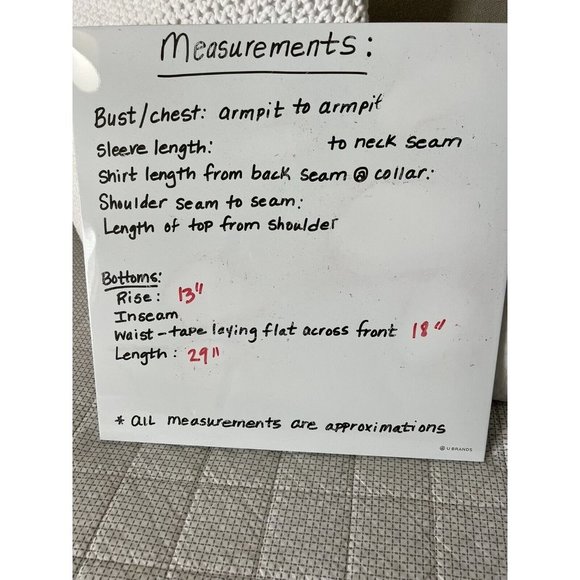 Measurements:
Bust/chest: armpit to armpit
Sleeve length: to neck seam
Shirt length from back seam @ collar:
Shoulder seam to seam:
Length of top from shoulder
Bottoms:
Rise: 13"
Inseam
Waist - tape laying flat across front 18"
Length: 29"
* all measurements are approximations
U BRANDS